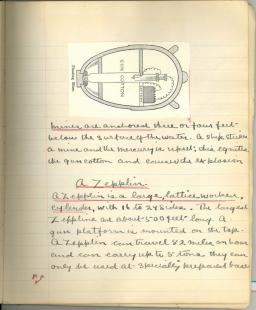 GUN COTTON
Floating Mine
mines are anchored three or four feet
below the surface of the water. A ship strikes
a mine and the mercury is upset; this ignites
the gun cotton and causes the explosion
A Zepplin.
A Zepplin is a large, lattice worker,
cylender, with 16 to 24 sides. The largest
Zepplins are about 500 feet long. A
gun platform is mounted on the top.
A Zepplin can travel 52 miles an hour
and can carry up to 5 tons. they can
only be used at specially prepared bases